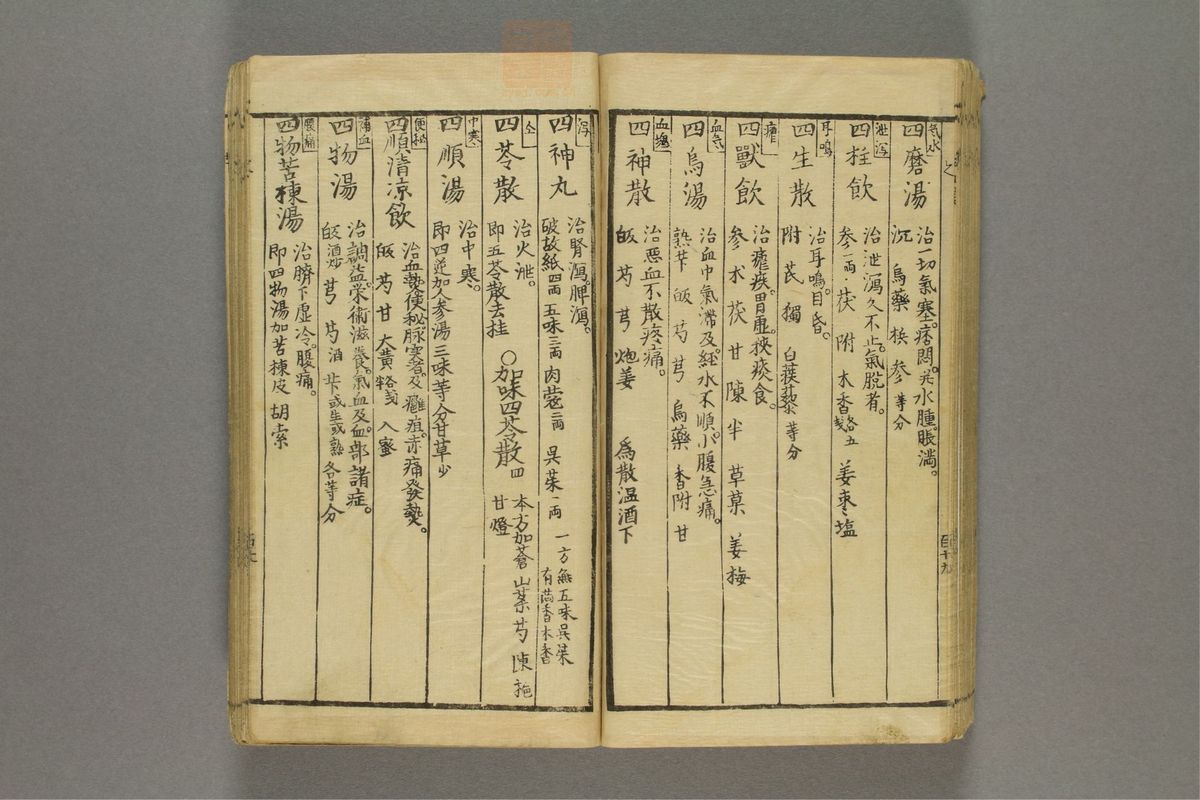 気水
四磨湯
治一切氣塞。痞悶。并水腫。脹満。
沉 烏藥 梹 参 等分
泄瀉
四柱飲
治泄瀉久不止。氣脱者。
参一兩・茯 附 木香各五戔 姜 枣 塩
耳鳴
四生散
治耳鳴。目昏。
附 芪 獨 白蒺藜 等分
瘧
四獸飲
治瘧疾。胃虚。挾痰食。
参 朮 茯 甘 陳 半 草菓 姜 梅
血氣
四烏湯
治血中氣滞及。経水不順。小腹急痛。
熟芐 皈 芍 芎 烏藥 香附 甘
血塊
四神散
治惡血不散疼痛。
皈 芍 芎 炮姜 為散温酒下
百十九
瀉
四神丸
治腎瀉。脾瀉。
破故紙四兩 五味三兩 肉蔻二兩 吳茱一兩
一方無五味吳茱
有茴香木香
四苓散
治火泄。
即五苓散去桂
○加味四苓散四
本方加蒼 山 芍 陳
甘 燈
中寒
四順湯
治中寒。
即四逆加人参湯三味等分甘草少
便秘
四順清凉飲
治血熱便秘。脉実者。及癰疽。赤痛發熱。
皈 芍 甘 大黃 各戔半 入蜜
補血
四物湯
治調益榮衛滋養。氣血及血部諸症。
皈酒炒 芎 芍酒 芐或生或熟 各等分
腹痛
四物苦楝湯
治臍下虚冷。腹痛。
即四物湯加苦楝皮 胡索